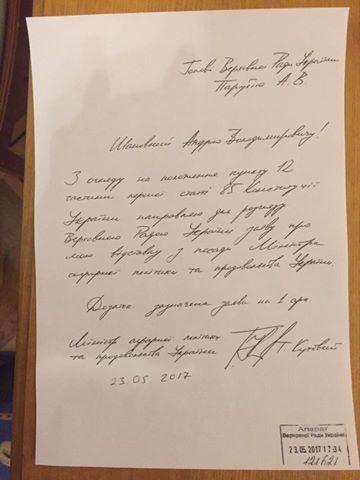 Голові Верховної Ради України
Парубію А. В.
Шановний Андрію Володимировичу!
З огляду на положення пункту 12
частини першої статті 85 Конституції
України направляю для розгляду
Верховною Радою України заяву про
мою відставку з посади Міністра
аграрної політики та продовольства України.
Додаток зазначена заява на 1 арк
Міністр аграрної політики
та продовольства України
Т. Кутовий
23.05 2017
Апарат
Верховної Ради України
23.05.2017 17:34